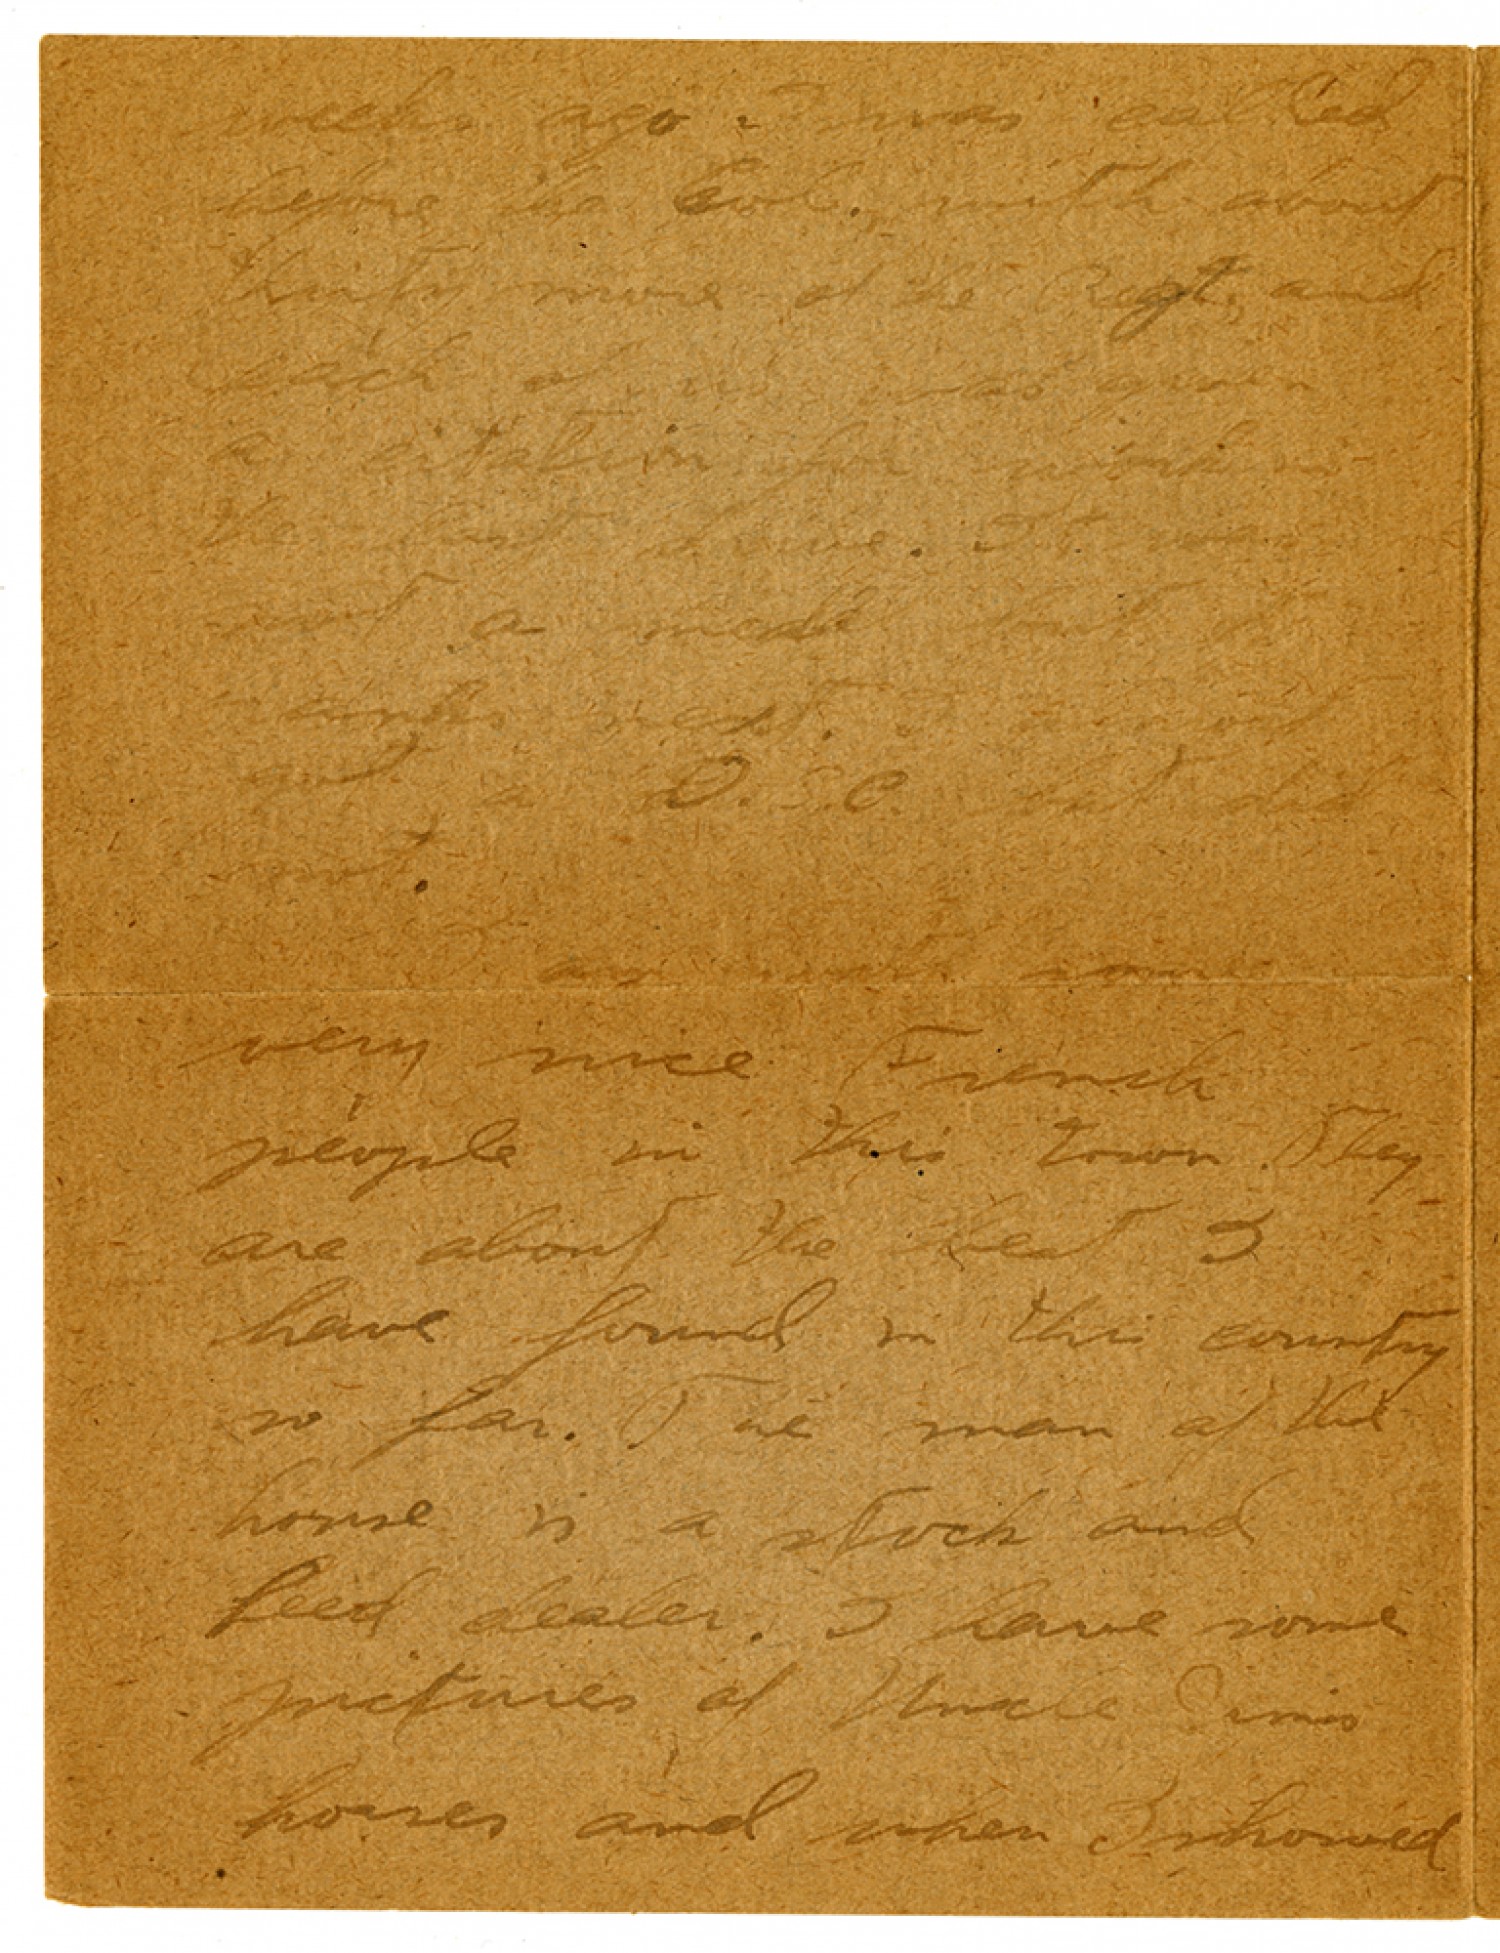 weeks ago I was called
before the Col. with about
thirty more of the Regt, and
each of us was given
a citation for work in
the last drive. It was
not a medal but it
ranks next. I almost
got a D.S.C. but did
not.
I am with some
very nice French
people in this town They
are about the best I
have found in this country
so far. The man of the
house is a stock and
feed dealer. I have some
pictures of Uncle
horses and when I showed